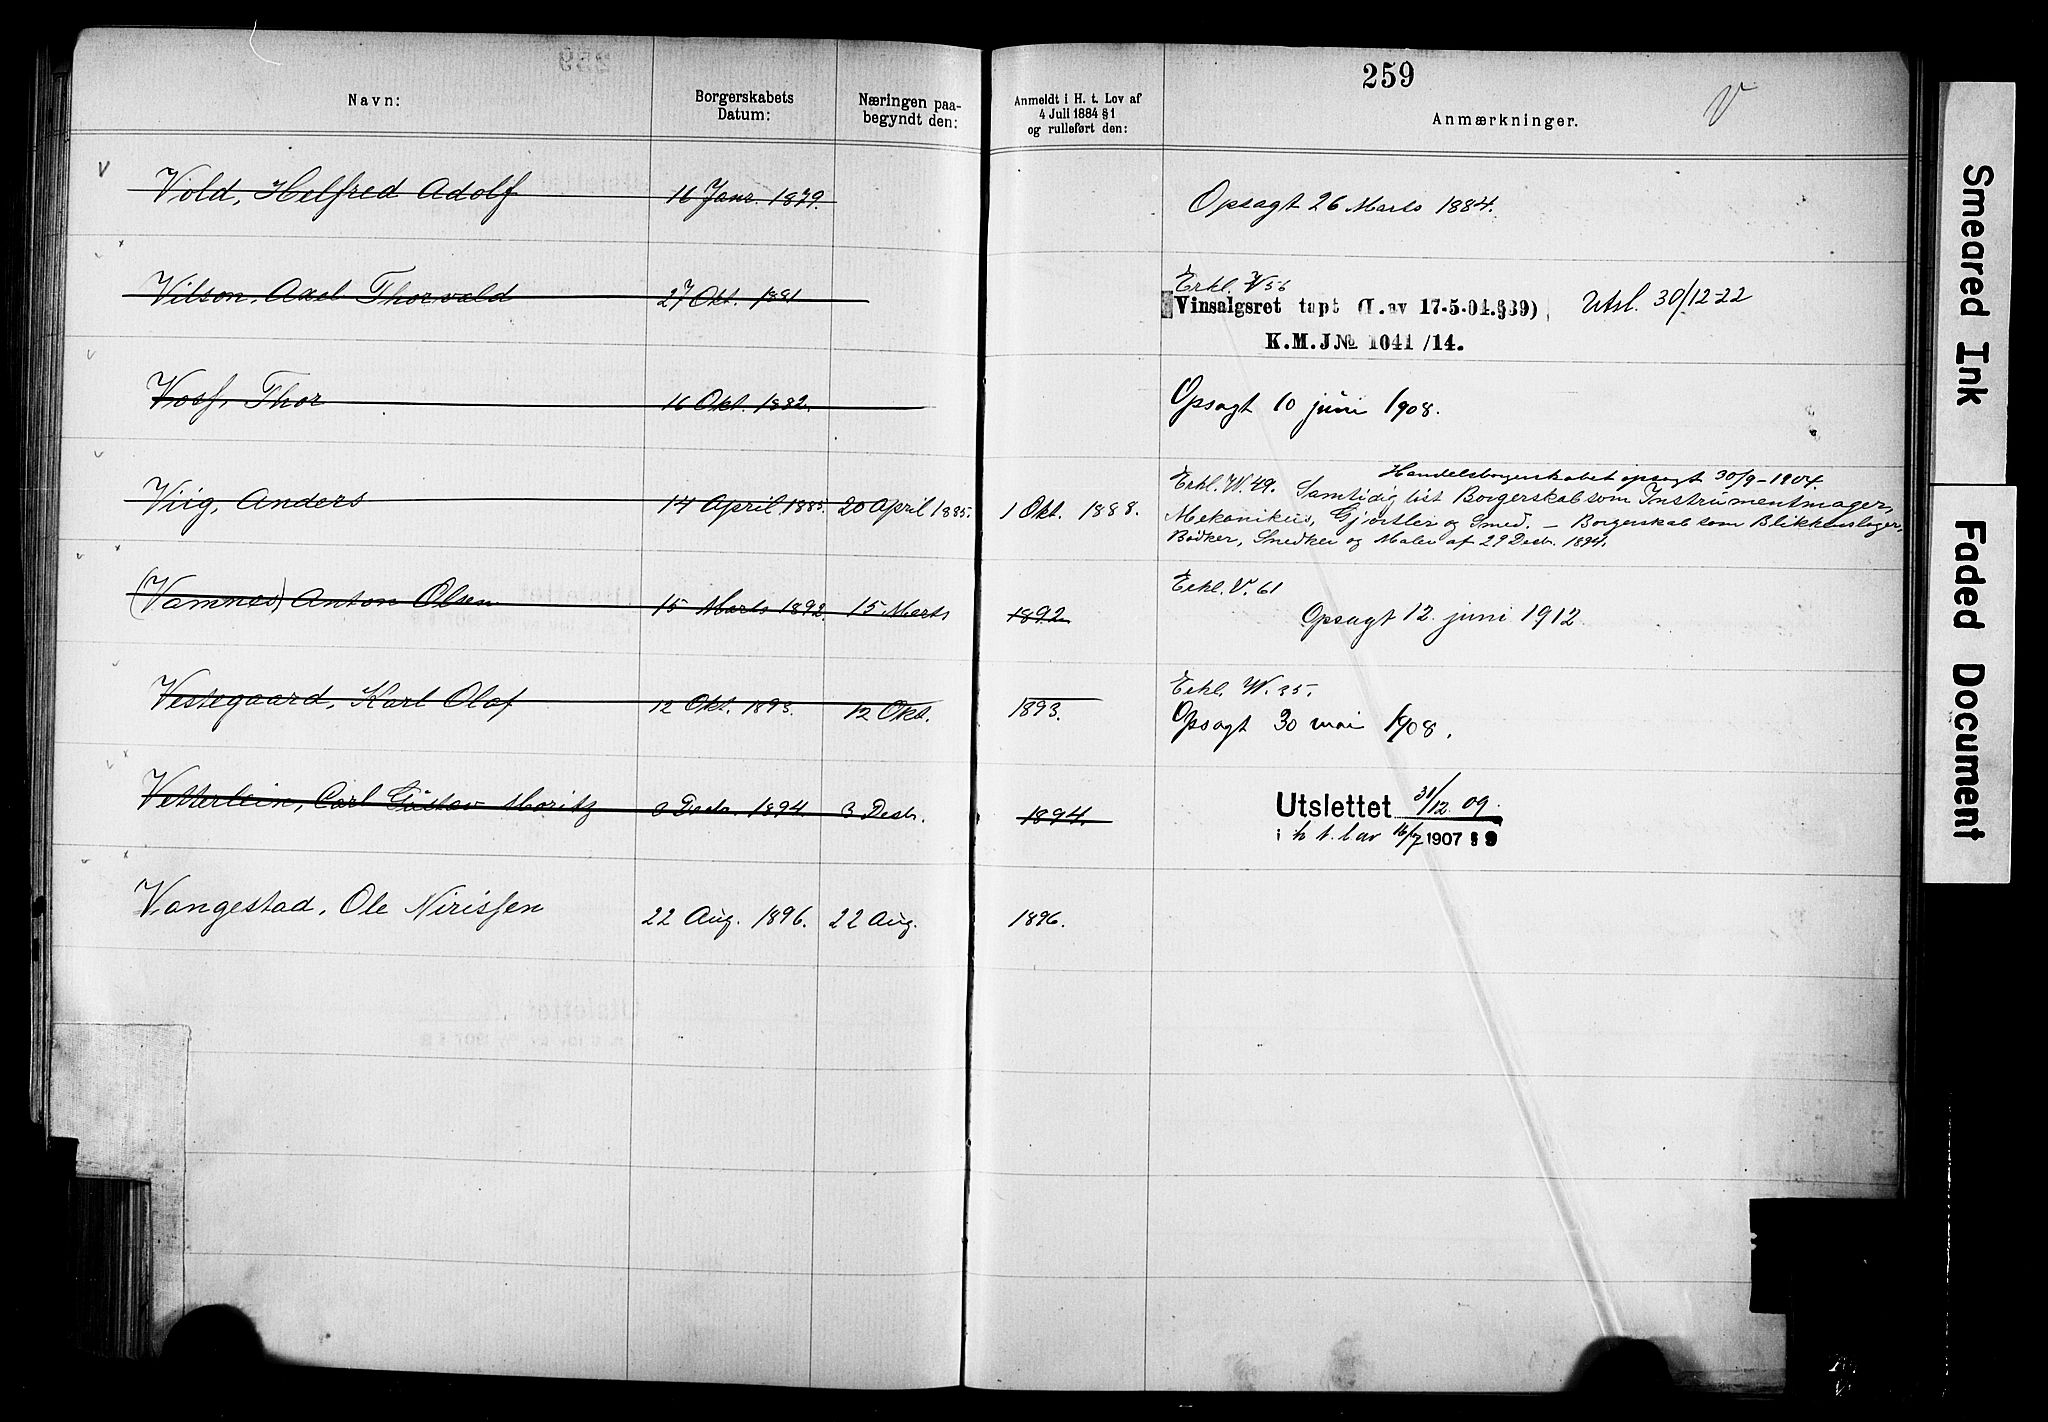 259
V
Navn:
Borgerskabets Datum:
Næringen paa-begyndt den:
Anmeldt i H. t. Lov af 4 Juli 1884 § 1 og rulleført den:
Anmærkninger.
Vold, Helfred Adolf 16 Janr. 1879. Opsagt 26 Marts 1884.
Vilson, Axel Thorvald 27 Okt. 1881 Erkl. V 56
Vinsalgsret tapt (L. av 17-5-04. §39) Utsl. 30/12-22
K.M.J№ 1041/14.
Voss, Thor 16 Okt. 1882. Opsagt 10 juni 1908.
Handelsborgerskabet opsagt 30/9-1904.
Viig, Anders 14 April 1885. 20 April 1885. 1 Okt. 1888. Erkl. W. 49. Samtidig löst Borgerskab som Instrumentmager,
Mekanikus, Gjørtler og Smed. – Borgerskab som Blikkenslager,
Bødker, Snedker og Maler af 29 Decbr. 1894.
(Vamnes) Anton Olsen 15 Marts 1892. 15 Marts 1892 Erkl. V. 61
Opsagt 12. juni 1912.
Vestegaard, Karl Olaf 12 Okt. 1893. 12 Okt. 1893. Erkl. W. 35.
Opsagt 30 mai 1908.
Vetterlein, Carl Gustav Moritz 3 Decbr. 1894. 3 Decbr. 1894. Utslettet 31/12 09.
i h t. lav 16/7 1907 § 9
Vangestad, Ole Nirissen 22 Aug. 1896. 22 Aug. 1896.
Smeared Ink
Faded Document